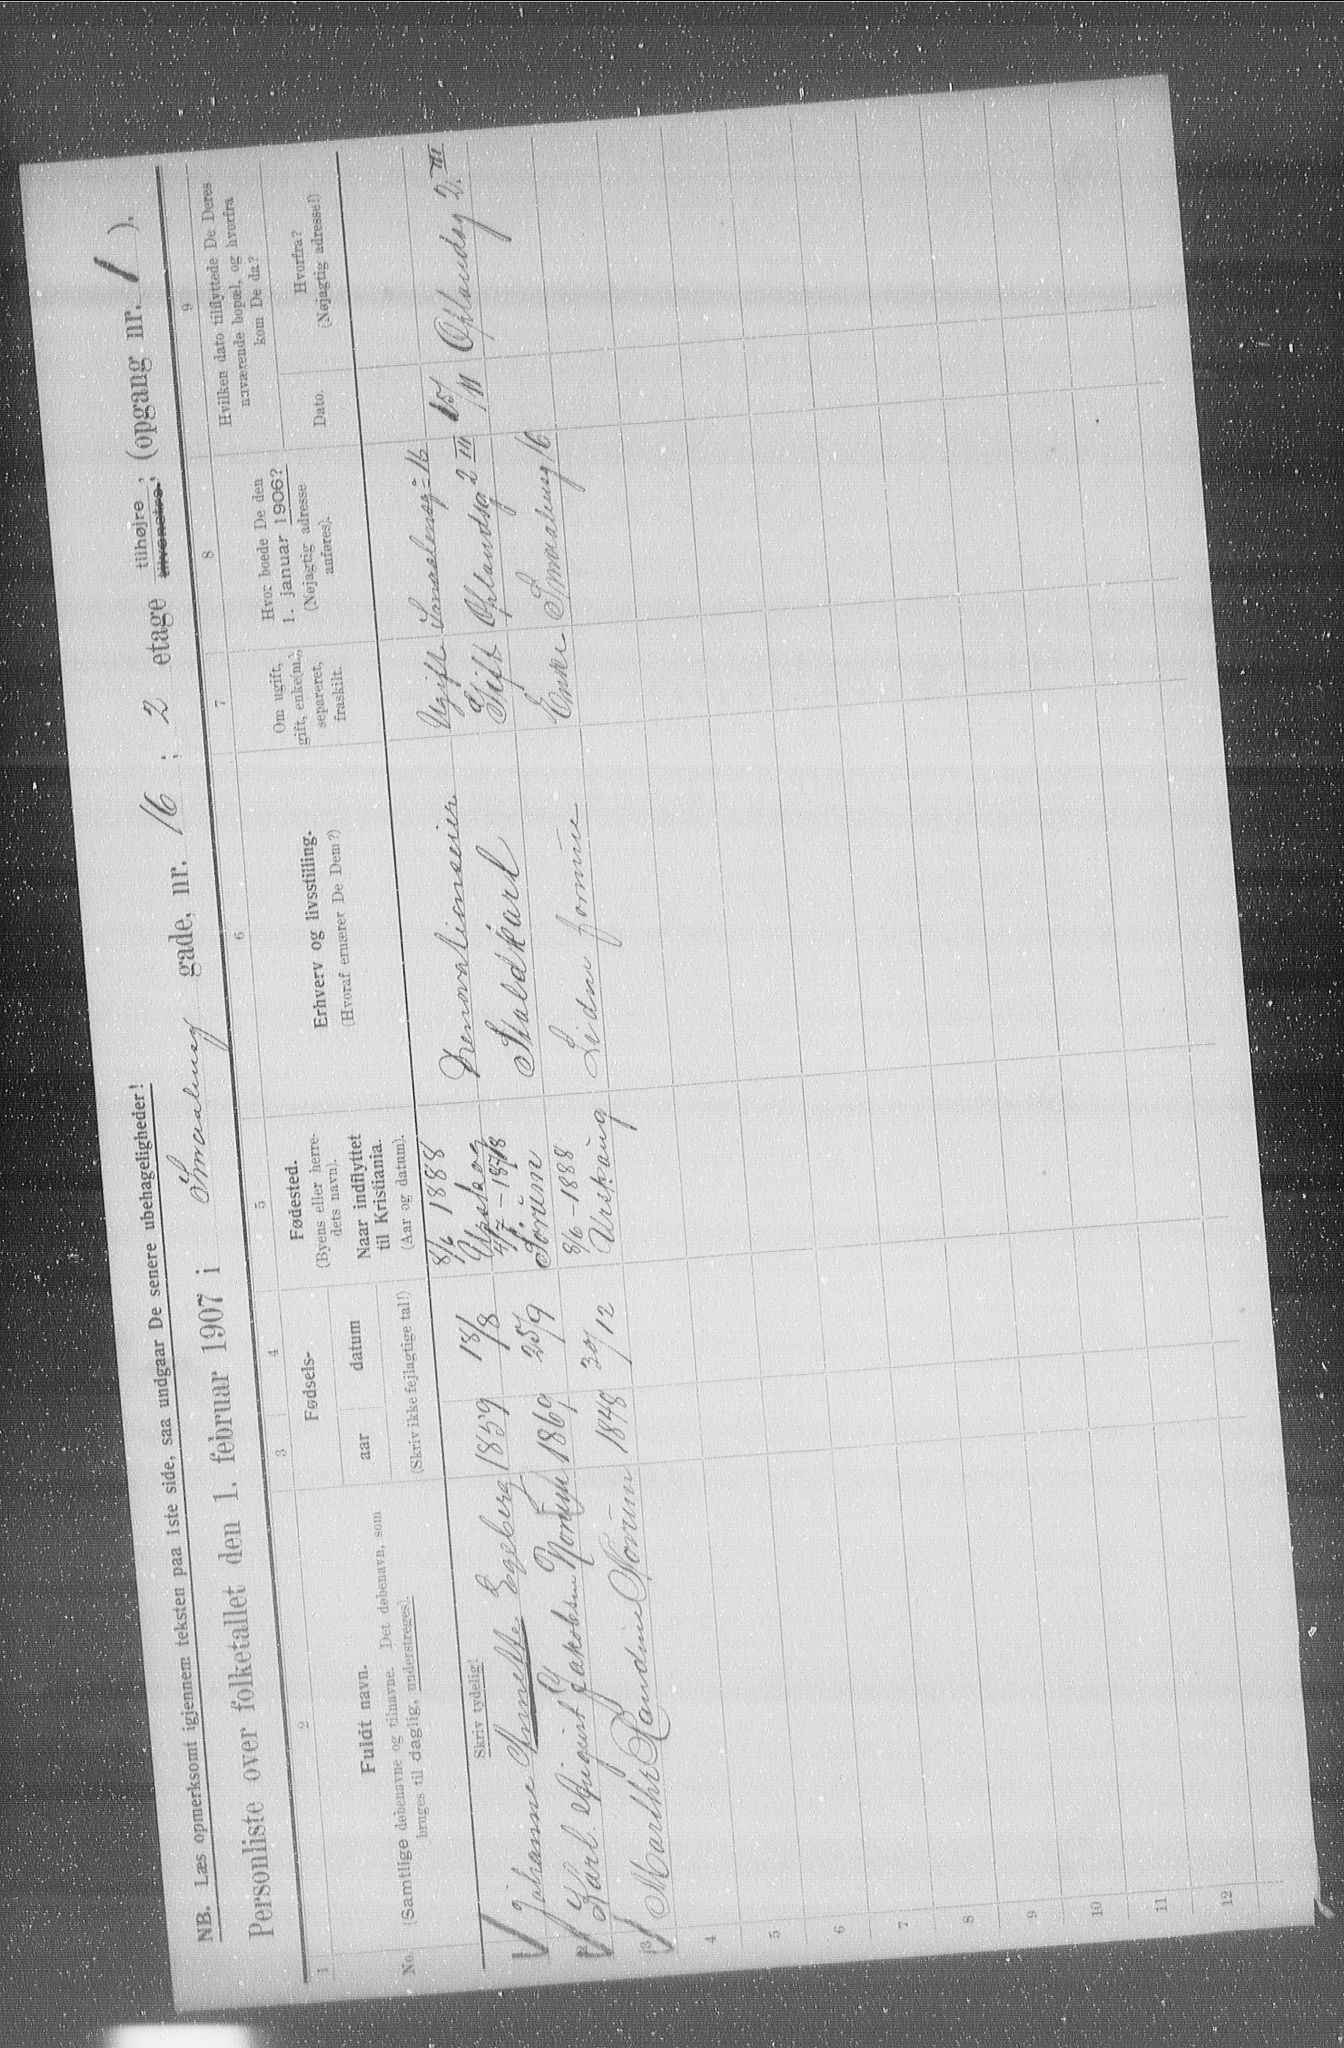 NB. Læs opmerksomt igjennem teksten paa 1ste side, saa undgaar De senere ubehageligheder!
Personliste over folketallet den 1. februar 1907 i Smaalensg gade, nr. 16 ; 2 etage tilhøjre, tilvenstre, (opgang nr. 1 ).
1 2 3 4 5 6 7 8 9
No.
Fuldt navn.
(Samtlige døbenavne og tilnavne. Det døbenavn, som
bruges til daglig, understreges).
Skriv tydelig!
Fødsels-
aar datum
(Skriv ikke fejlagtige tal!)
Fødested.
(Byens eller herre-
dets navn).
Naar indflyttet
til Kristiania.
(Aar og datum).
Erhverv og livsstilling.
(Hvoraf ernærer De Dem?)
Om ugift,
gift, enke(m.),
separeret,
fraskilt.
Hvor boede De den
1. januar 1906?
(Nøjagtig adresse
anføres).
Hvilken dato tilflyttede De Deres
nuværende bopæl, og hvorfra
kom De da?
Dato.
Hvorfra?
(Nøjagtig adresse!)
8/6 1888
Johanne Annette Egeberg 1859 18/8 Ugift Smaalensg: 16
4/7 - 1878
2 Karl August Jakobsen 1869 25/9 Sørum Staldkarl Gift Oplandsg 2 III 15/11 Oplandsg 2. III
8/6 - 1888
3 Marthe Randine Norum 1848 30/12 Urskoug Enke Smaalensg 16
4
5
6
7
8
9
10
11
12